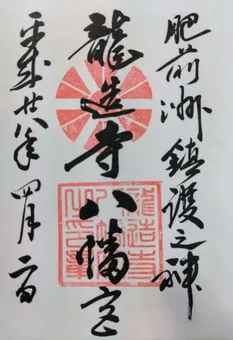 肥前州鎮護之神
龍造寺八幡宮
平成廿八年四月二日